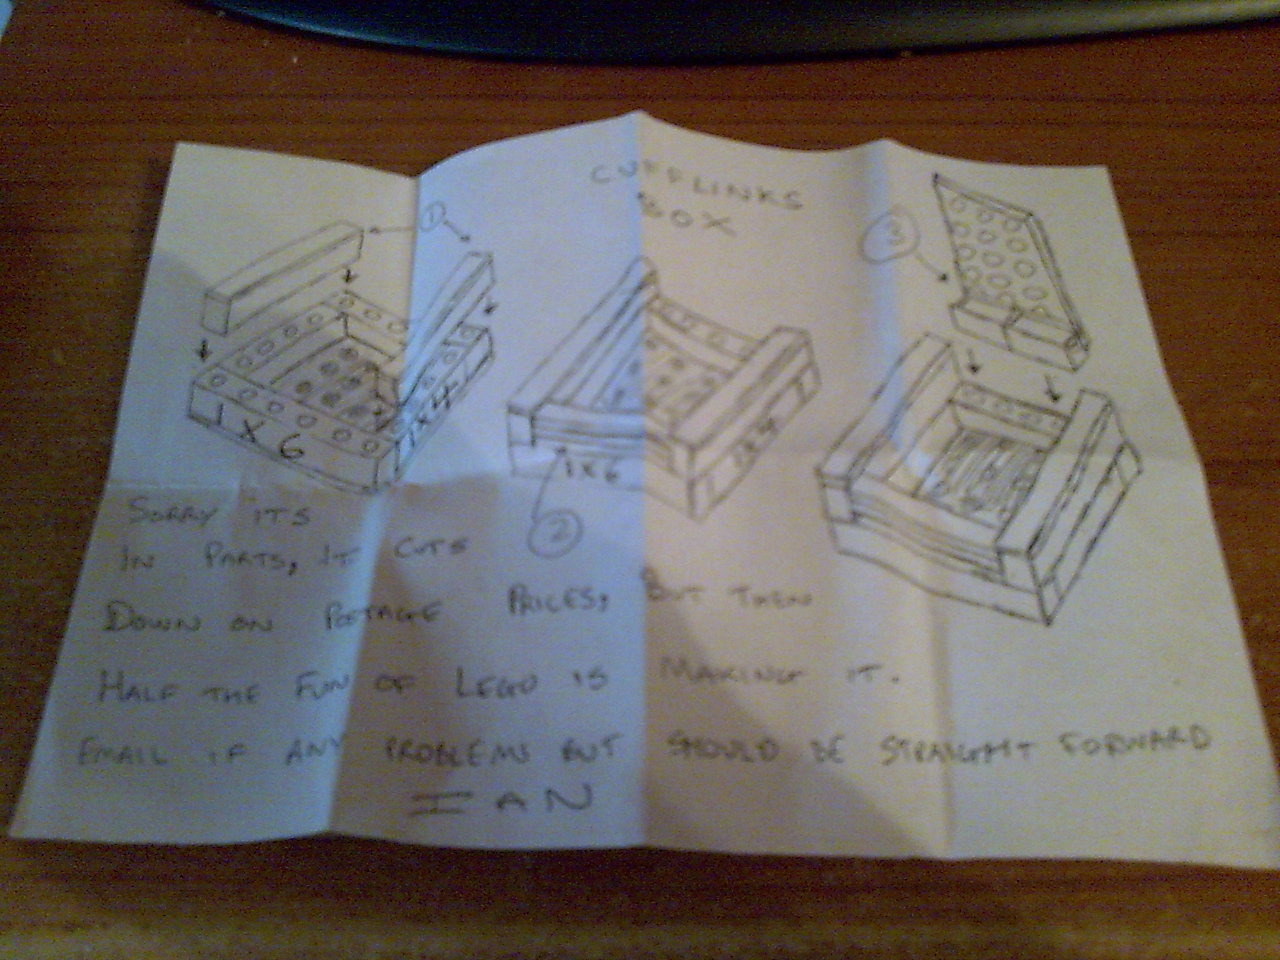 CUFFLINKS
BOX
1
1 X 6
1 X 4
1 X 6
2
SORRY ITS
IN PARTS, IT CUTS
DOWN ON POSTAGE PRICES, BUT THEN
HALF THE FUN OF LEGO IS MAKING IT.
EMAIL IF ANY PROBLEMS BUT SHOULD BE STRAIGHT FORWARD
IAN